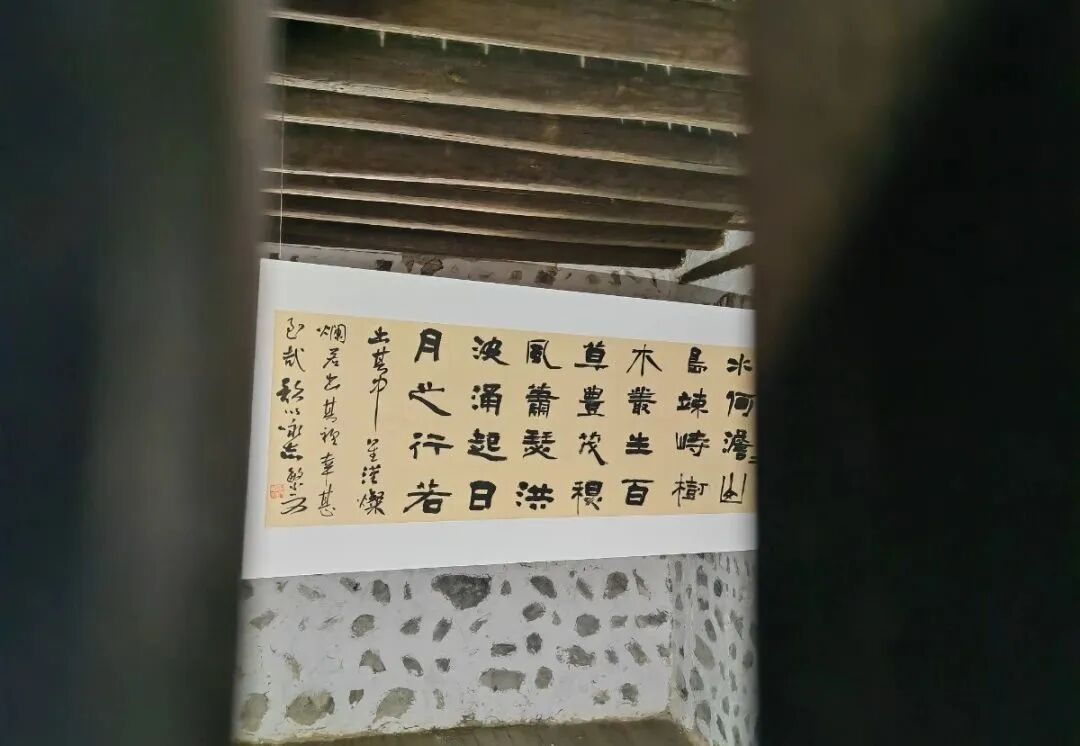 水何澹〻山
島竦峙樹
木叢生百
草豊茂秋
風蕭瑟洪
波涌起日
月之行若
出其中星漢燦
爛若出其裡幸甚
至哉歌以咏志